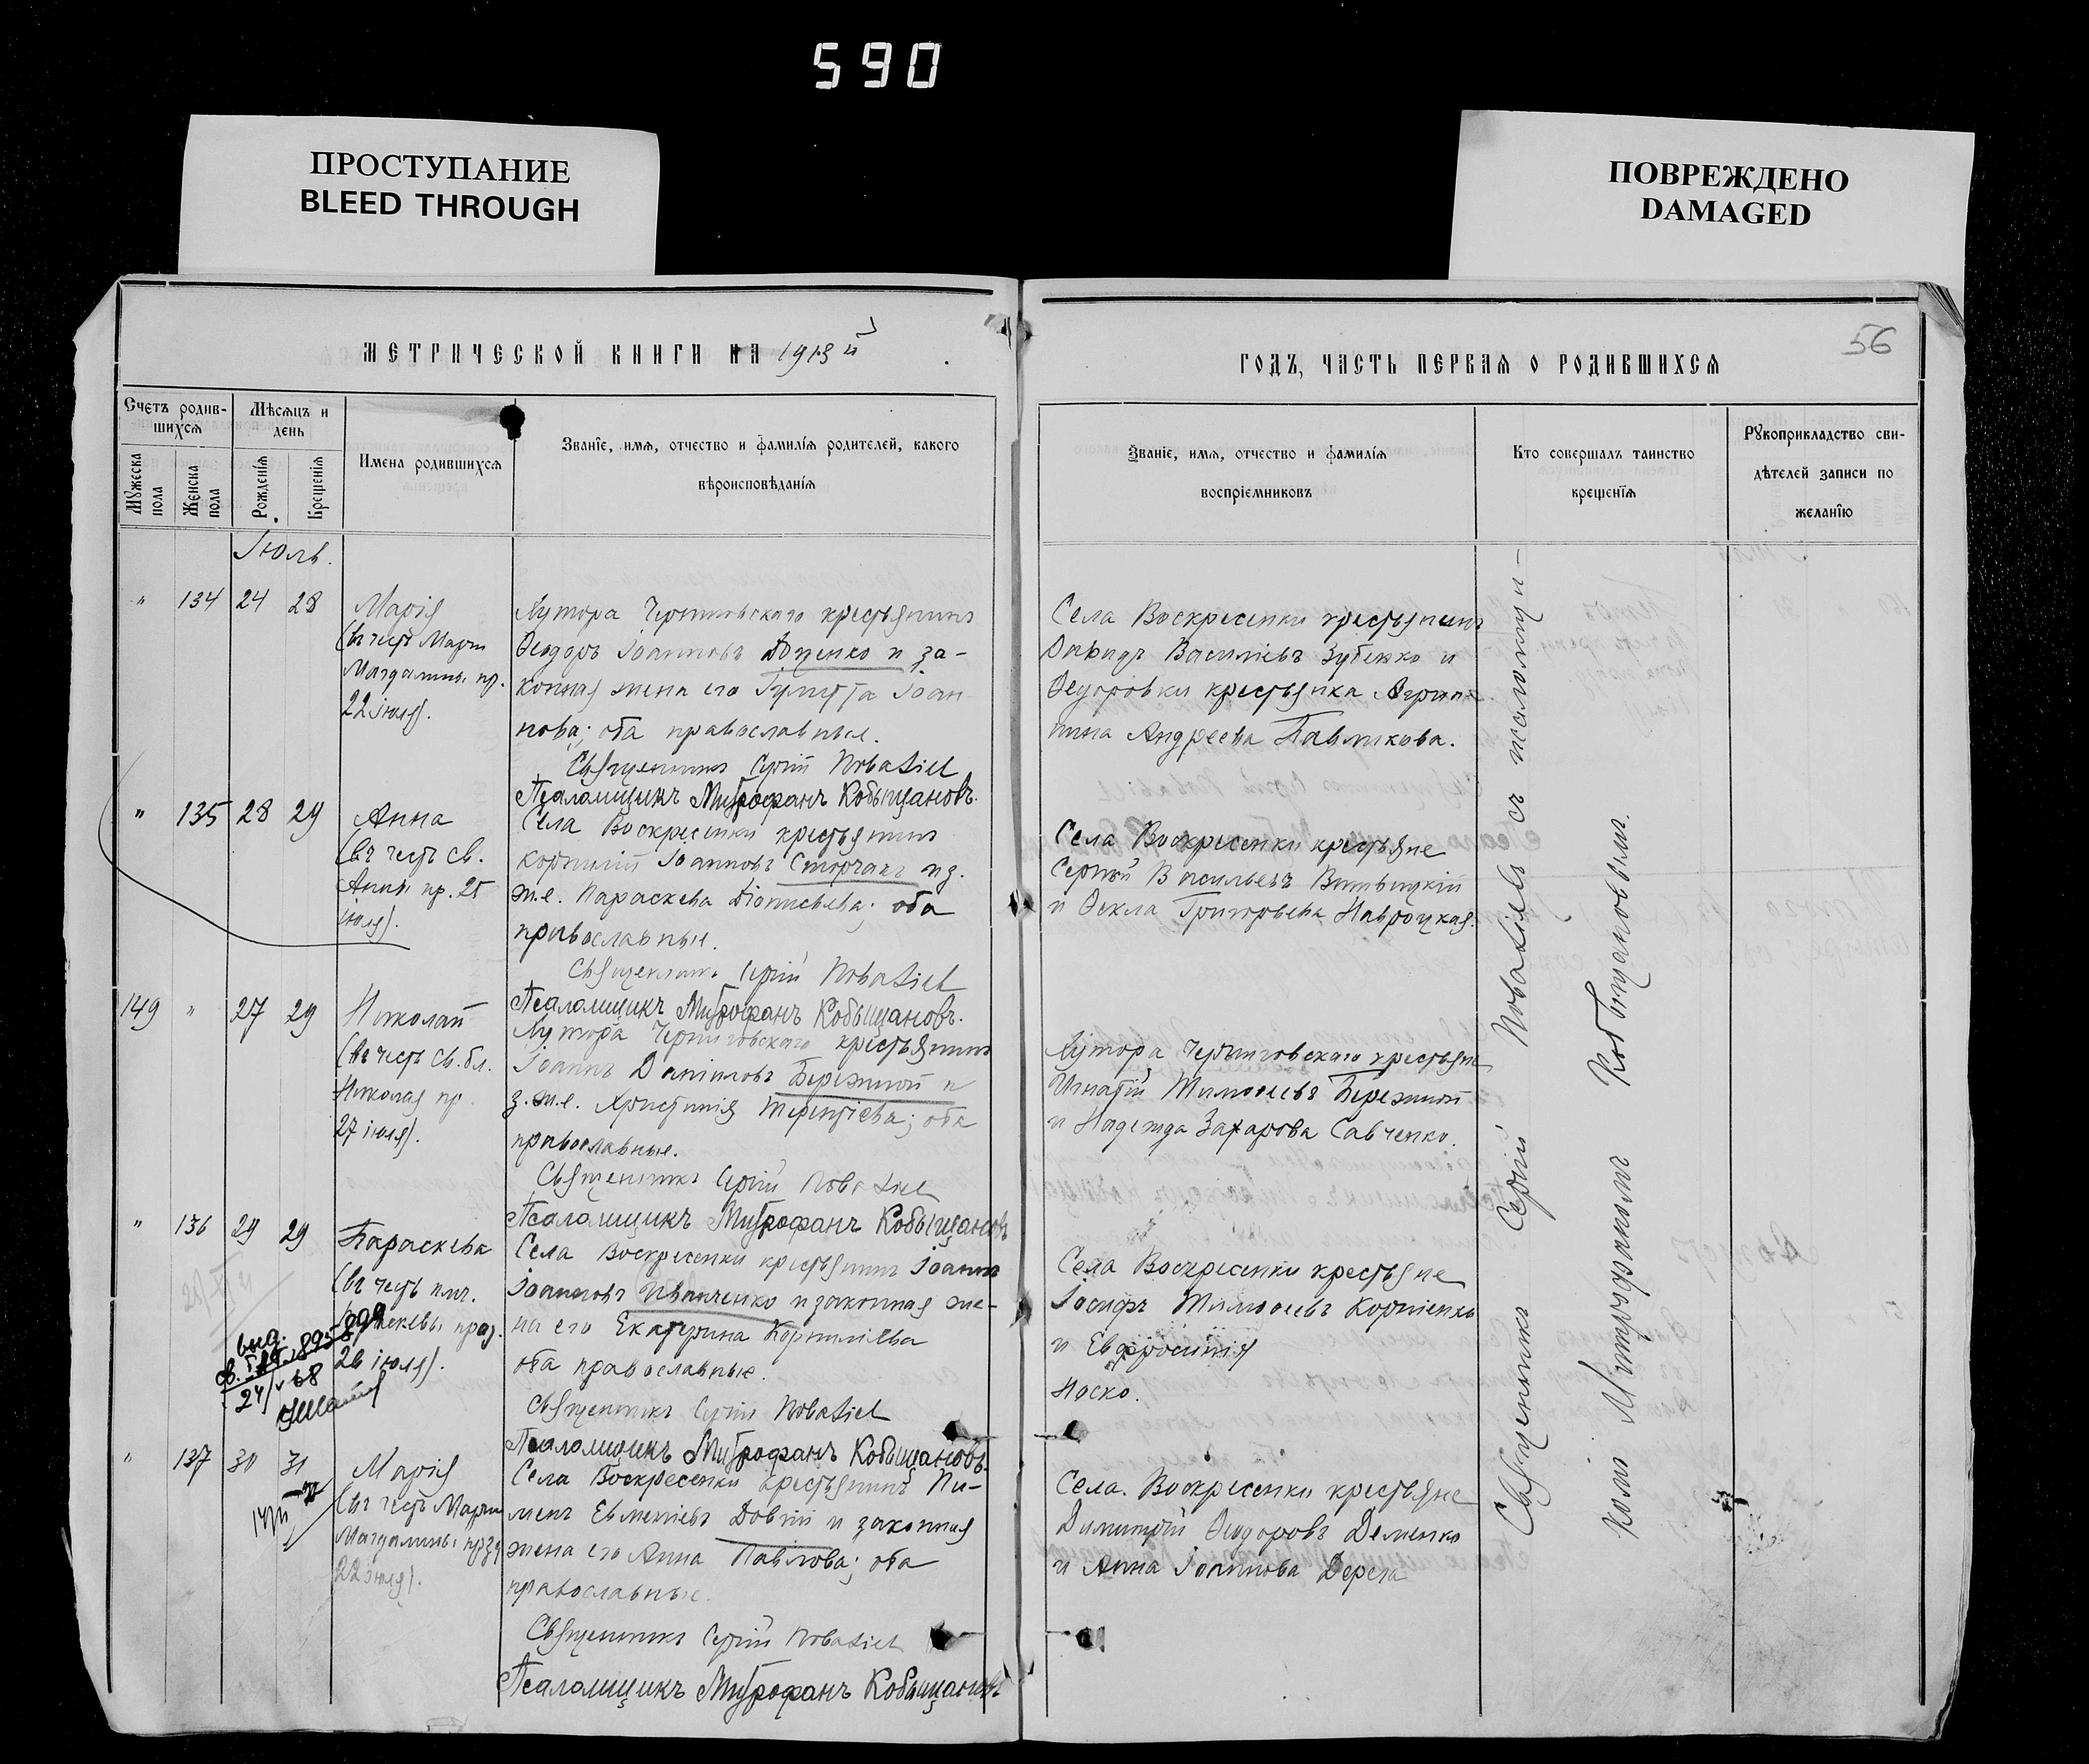 590
ПРОСТУПАНИЕ
BLEED THROUGH
ПОВРЕЖДЕНО
DAMAGED
56
МЕТРИЧЕСКОЙ КНИГИ НА 1913 й
ГОДЪ, ЧАСТЬ ПЕРВАЯ О РОДИВШИХСЯ
Счетъ родив-
шихся
Мужеска пола
Женска пола
Мѣсяцъ и
день
Рожденія
Крещенія
Имена родившихся
Званіе, имя, отчество и фамилія родителей, какого
вѣроисповѣданія
Званіе, имя, отчество и фамилія
воспріємниковъ
Кто совершалъ таинство
крещенія
Рукоприкладство сви-
дѣтелей записи по
желанію
Іюль.
" 134 24 28
Марія
(въ честь Маріи
Магдалины пр.
22 іюля).
Хутора Черниговскаго крестьянинъ
Ѳеодоръ Іоанновъ Доценко и за-
конная жена его Іоан-
нова; оба православные.
Священникъ Сергій
Псаломщикъ Митрофанъ Кобыщановъ.
Села Воскресенки крестьянинъ
Давидъ Василіевъ Зубенко и
Ѳедоровки крестьянка Агрип-
пина Андреева Павликова.
" 135 28 29
Анна
(въ честь св.
Анны пр. 25
іюля).
Села Воскресенки крестьянинъ
Корнилій Іоанновъ Сторчакъ и з.
ж.е. Параскева Діонисіева; оба
православные.
Священникъ Сергій
Псаломщикъ Митрофанъ Кобыщановъ.
Села Воскресенки крестьяне
Сергій Васильевъ
и Ѳекла Григорьева Навроцкая.
149 " 27 29
Николай
(въ честь св. бл.
Николая пр.
27 іюля).
Хутора Черниговскаго крестьянинъ
Іоаннъ Даніиловъ Бережной и
з. ж.е. Христинія Терентіева; оба
православные.
Священникъ Сергій
Псаломщикъ Митрофанъ Кобыщановъ
Хутора Черниговскаго крестьяне
Игнатій Тимоѳеевъ Бережной
и Надежда Захарова Савченко.
" 136 29 29
Параскева
(въ честь пмч.
праз.
26 іюля).
Села Воскресенки крестьянинъ Іоаннъ
Іоанновъ Иванченко и законная же-
на его Екатерина Корниліева
оба православные.
Священникъ Сергій
Псаломщикъ Митрофанъ Кобыщановъ.
Села Воскресенки крестьяне
Іосифъ Тимоѳеевъ Корніенко
и Евфросинія
Носко.
выд.
24/V 68
" 137 30 31
Марія
(въ честь Маріи
Магдалины празд
22 іюля).
Села Воскресенки крестьянинъ Пи-
менъ Евменіевъ Довгій и законная
жена его Анна Павлова; оба
православные.
Священникъ Сергій
Псаломщикъ Митрофанъ Кобыщановъ
Села Воскресенки крестьяне
Димитрій Ѳеодоровъ Деменко
и Анна Іоаннова Дереза
Священникъ Сергій съ псаломщи-
комъ Митрофаномъ Кобыщановымъ.